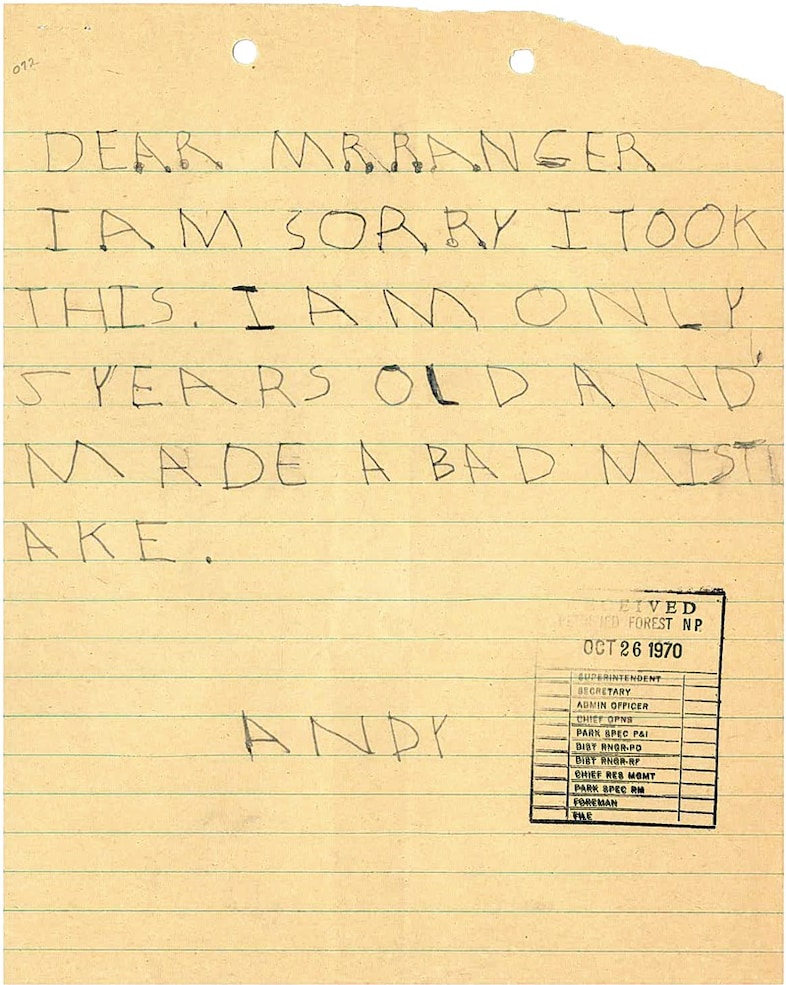 072
DEAR MR RANGER
I AM SORRY I TOOK
THIS. I AM ONLY
5 YEARS OLD AND
MADE A BAD MIST
AKE.
ANDY
RECEIVED
PETRIFIED FOREST NP
OCT 26 1970
SUPERINTENDENT
SECRETARY
ADMIN OFFICER
CHIEF OPNS
PARK SPEC P&I
DIST RNGR-PD
DIST RNGR-RF
CHIEF RES MGMT
PARK SPEC RM
FOREMAN
FILE